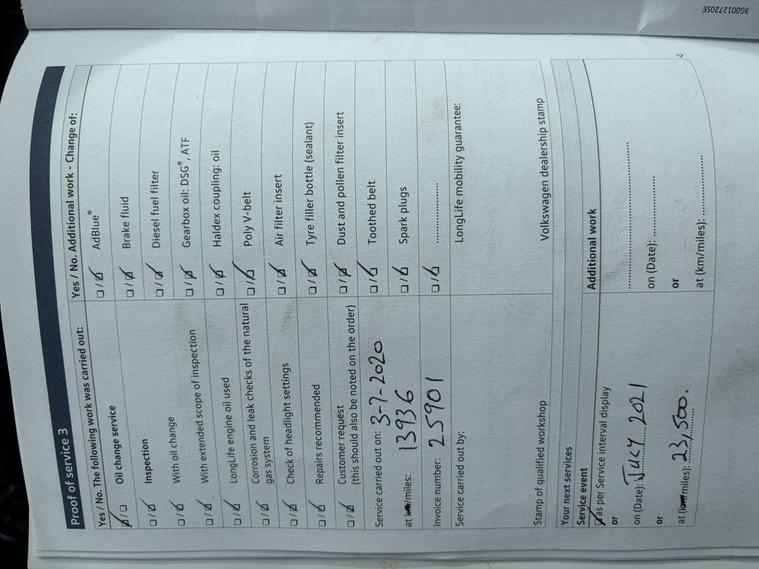 3G0012720SE
Proof of service 3
Yes / No. The following work was carried out:
Oil change service
Inspection
With oil change
With extended scope of inspection
LongLife engine oil used
Corrosion and leak checks of the natural
gas system
Check of headlight settings
Repairs recommended
Customer request
(this should also be noted on the order)
Service carried out on: 3-7-2020
at km/miles: 13936
Invoice number: 25901
Service carried out by:
Stamp of qualified workshop
Yes / No. Additional work - Change of:
AdBlue®
Brake fluid
Diesel fuel filter
Gearbox oil: DSG®, ATF
Haldex coupling: oil
Poly V-belt
Air filter insert
Tyre filler bottle (sealant)
Dust and pollen filter insert
Toothed belt
Spark plugs
LongLife mobility guarantee:
Volkswagen dealership stamp
Your next services
Service event
as per Service interval display
or
on (Date): JULY 2021
or
at (km/miles): 23,500.
Additional work
on (Date):
or
at (km/miles):